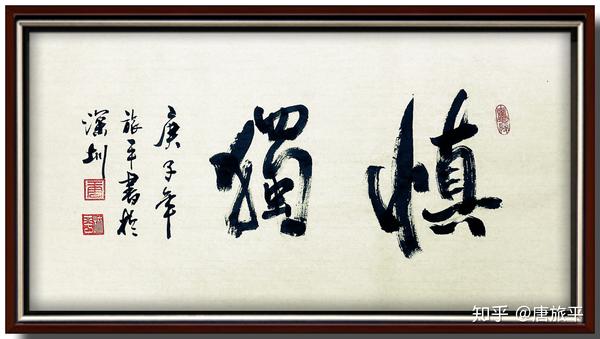 慎獨
庚子年
旅平書於
深圳
知乎 @唐旅平